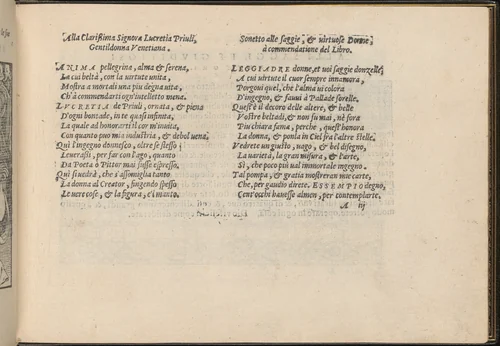 Alla Clarissima Signora Lucretia Priuli,
Gentildonna Venetiana.
ANIMA pellegrina, alma & serena,
La cui beltà, con la uirtute unita,
Mostra a mortali una piu degna uita,
Ch'à commendarti ogn'intelletto mena.
LVCRETIA de Priuli, ornata, & piena
D'ogni bontade, in te quasi infinita,
La quale ad honorarti il cor m'inuita,
Con quanto puo mia industria, & debol uena;
Qui l'ingegno donnesco, oltre se stesso
Leuerassi, per far con l'ago, quanto
Da Poeta ò Pittor mai fusse espresso,
Qui si uedrà, che s'assimiglia tanto
La donna al Creator, fingendo spesso
Le uere cose, & la figura, e'l manto.
Sonetto alle saggie, & uirtuose Donne,
à commendatione del Libro.
LEGGIADRE donne, et uoi saggie donzelle,
A cui uirtute il cuor sempre innamora,
Porgoui quel, che l'alma ui colora
D'ingegno, & fauui à Pallade sorelle.
Quest'è il decoro delle altere, & belle
Vostre beltadi, & non fu mai, nè fora
Piu chiara fama, perche, quest'honora
La donna, & ponla in Ciel fra l'altre stelle.
Vedrete un giusto, uago, & bel disegno,
La uarietà, la gran misura, & l'arte,
Sì, che poco piu ual immortale ingegno.
Tal pompa, & gratia mostreran mie carte,
Che, per gaudio direte, ESSEMPIO degno,
Cent'occhi hauesse almen, per contemplarte.
A iij